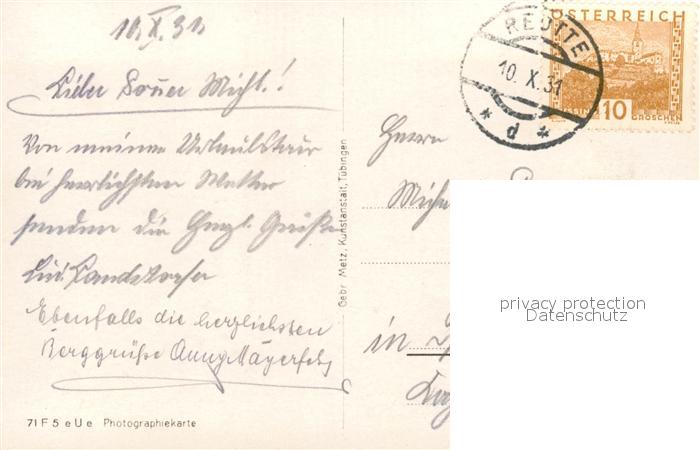 10.X.31
Lieber Michl.!
Von meiner Urlaubstour
bei herrlichstem Wetter
senden die herzl. Grüße
Ebenfalls die herzlichsten
Berggrüße Anny
71 F 5 e U e Photographiekarte
Gebr. Metz, Kunstanstalt, Tübingen
REUTTE
10.X.31
* d *
ÖSTERREICH
10
GROSCHEN
Herrn
in
privacy protection
Datenschutz